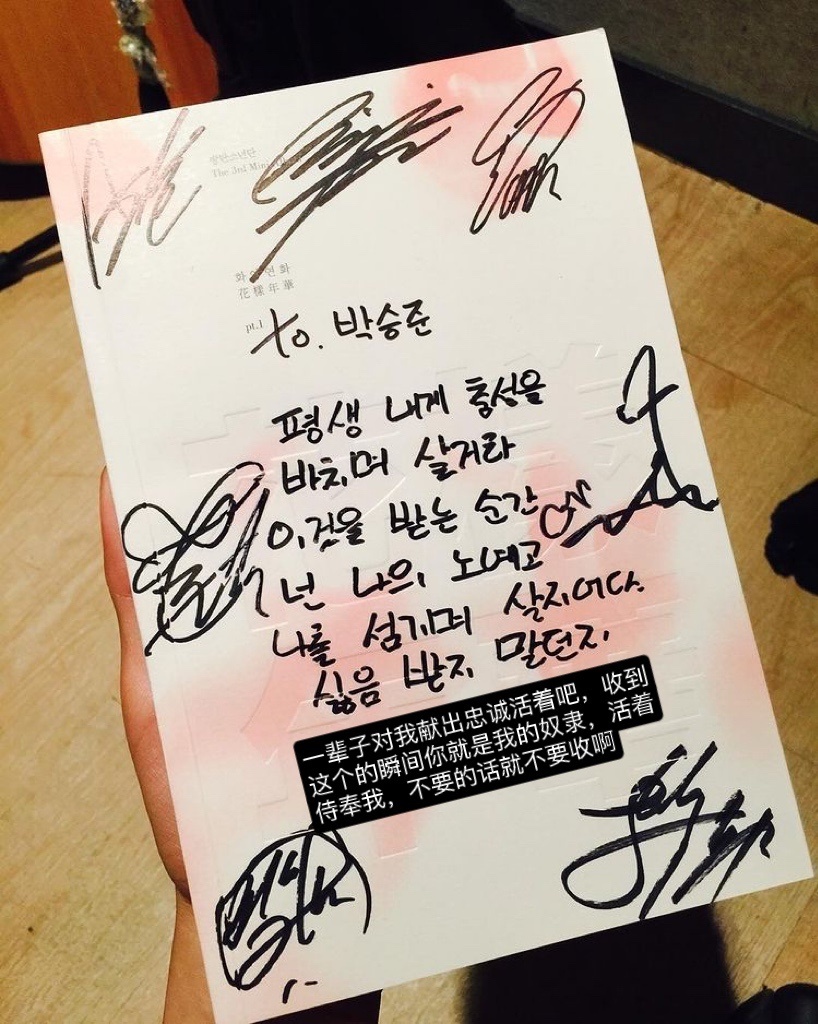 방탄소년단
The 3rd Mini
화양연화
花樣年華
pt.1
to. 박승준
평생 내게 충성을
바치며 살거라
이것을 받는 순간
넌 나의 노예고
나를 섬기며 살지어다.
싫음 받지 말던지.
一辈子对我献出忠诚活着吧，收到
这个的瞬间你就是我的奴隶，活着
侍奉我，不要的话就不要收啊